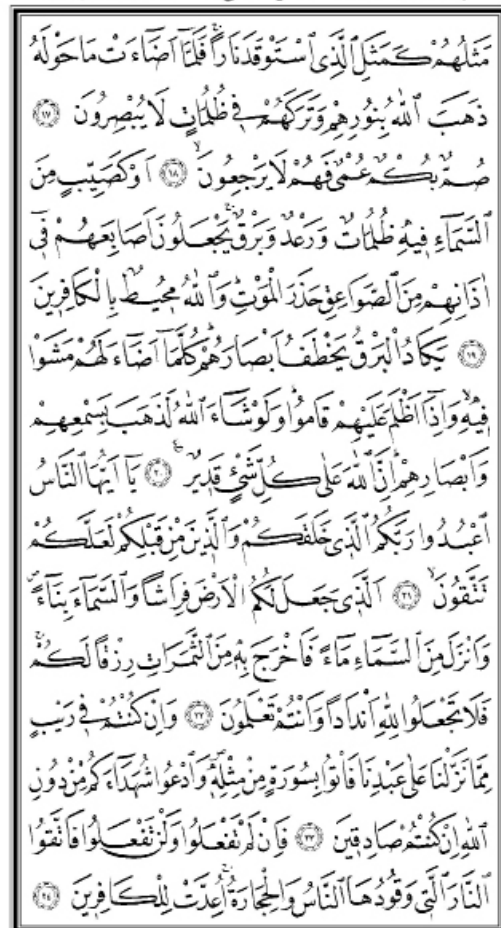 مَثَلُهُمْ كَمَثَلِ الَّذِي اسْتَوْقَدَ نَارًاۚ فَلَمَّٓا اَضَٓاءَتْ مَا حَوْلَهُ
ذَهَبَ اللّٰهُ بِنُورِهِمْ وَتَرَكَهُمْ فٖي ظُلُمَاتٍ لَا يُبْصِرُونَ ﴿١٧﴾
صُمٌّ بُكْمٌ عُمْيٌ فَهُمْ لَا يَرْجِعُونَۙ ﴿١٨﴾ اَوْ كَصَيِّبٍ مِنَ
السَّمَٓاءِ فٖيهِ ظُلُمَاتٌ وَرَعْدٌ وَبَرْقٌۚ يَجْعَلُونَ اَصَابِعَهُمْ فٖٓي
اٰذَانِهِمْ مِنَ الصَّوَاعِقِ حَذَرَ الْمَوْتِۜ وَاللّٰهُ مُحٖيطٌ بِالْكَافِرٖينَ
﴿١٩﴾ يَكَادُ الْبَرْقُ يَخْطَفُ اَبْصَارَهُمْۜ كُلَّمَٓا اَضَٓاءَ لَهُمْ مَشَوْا
فٖيهِۙ وَاِذَٓا اَظْلَمَ عَلَيْهِمْ قَامُواۜ وَلَوْ شَٓاءَ اللّٰهُ لَذَهَبَ بِسَمْعِهِمْ
وَاَبْصَارِهِمْۜ اِنَّ اللّٰهَ عَلٰى كُلِّ شَيْءٍ قَدٖيرٌ ﴿٢٠﴾ يَٓا اَيُّهَا النَّاسُ
اعْبُدُوا رَبَّكُمُ الَّذٖي خَلَقَكُمْ وَالَّذٖينَ مِنْ قَبْلِكُمْ لَعَلَّكُمْ
تَتَّقُونَۙ ﴿٢١﴾ اَلَّذٖي جَعَلَ لَكُمُ الْاَرْضَ فِرَاشًا وَالسَّمَٓاءَ بِنَٓاءًۖ
وَاَنْزَلَ مِنَ السَّمَٓاءِ مَٓاءً فَاَخْرَجَ بِهٖ مِنَ الثَّمَرَاتِ رِزْقًا لَكُمْۚ
فَلَا تَجْعَلُوا لِلّٰهِ اَنْدَادًا وَاَنْتُمْ تَعْلَمُونَ ﴿٢٢﴾ وَاِنْ كُنْتُمْ فٖي رَيْبٍ
مِمَّا نَزَّلْنَا عَلٰى عَبْدِنَا فَأْتُوا بِسُورَةٍ مِنْ مِثْلِهٖۖ وَادْعُوا شُهَدَٓاءَكُمْ مِنْ دُونِ
اللّٰهِ اِنْ كُنْتُمْ صَادِقٖينَ ﴿٢٣﴾ فَاِنْ لَمْ تَفْعَلُوا وَلَنْ تَفْعَلُوا فَاتَّقُوا
النَّارَ الَّتٖي وَقُودُهَا النَّاسُ وَالْحِجَارَةُۚ اُعِدَّتْ لِلْكَافِرٖينَ ﴿٢٤﴾